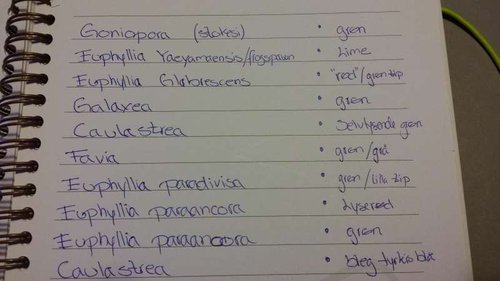 Goniopora (stokesi) • gren
Euphyllia Yaeyamaensis/frogspawn • Lime
Euphyllia Glabrescens • "red"/gren tip
Galaxea • gren
Caulastrea • Selvlysende gren
Favia • gren/grå
Euphyllia paradivisa • gren/lilla tip
Euphyllia paraancora • Lysered
Euphyllia paraancora • gren
Caulastrea • bleg-tyrkis blå